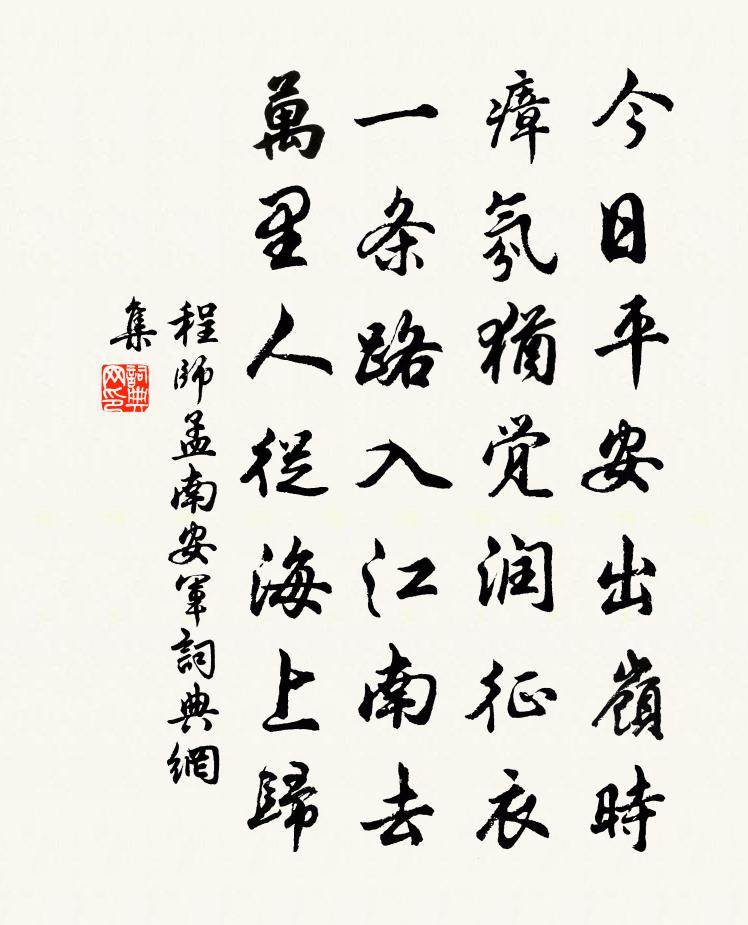 今日平安出嶺時
瘴氛猶觉润征衣
一条路入江南去
萬里人從海上歸
程師孟南安軍詞典網
集
詞典
网印